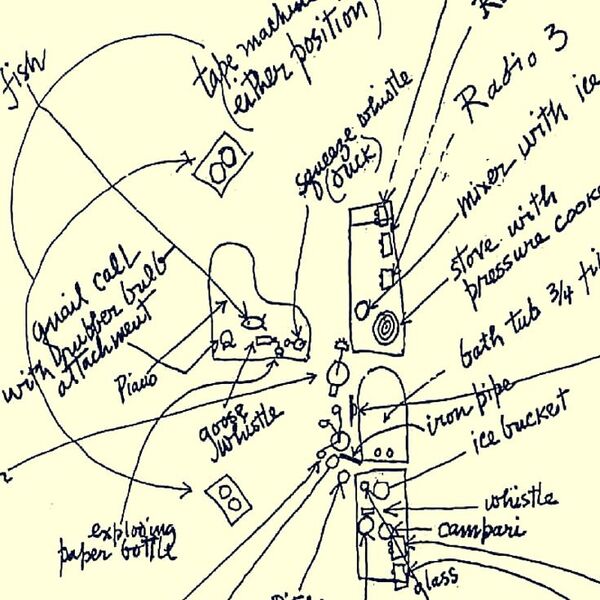 fish
tape machine
(either position)
squeeze whistle
(duck)
Radio 3
mixer with ice
stove with
pressure cook
bath tub 3/4
quail call
with rubber bulb
attachment
Piano
goose
whistle
iron pipe
ice bucket
whistle
campari
exploding
paper bottle
glass